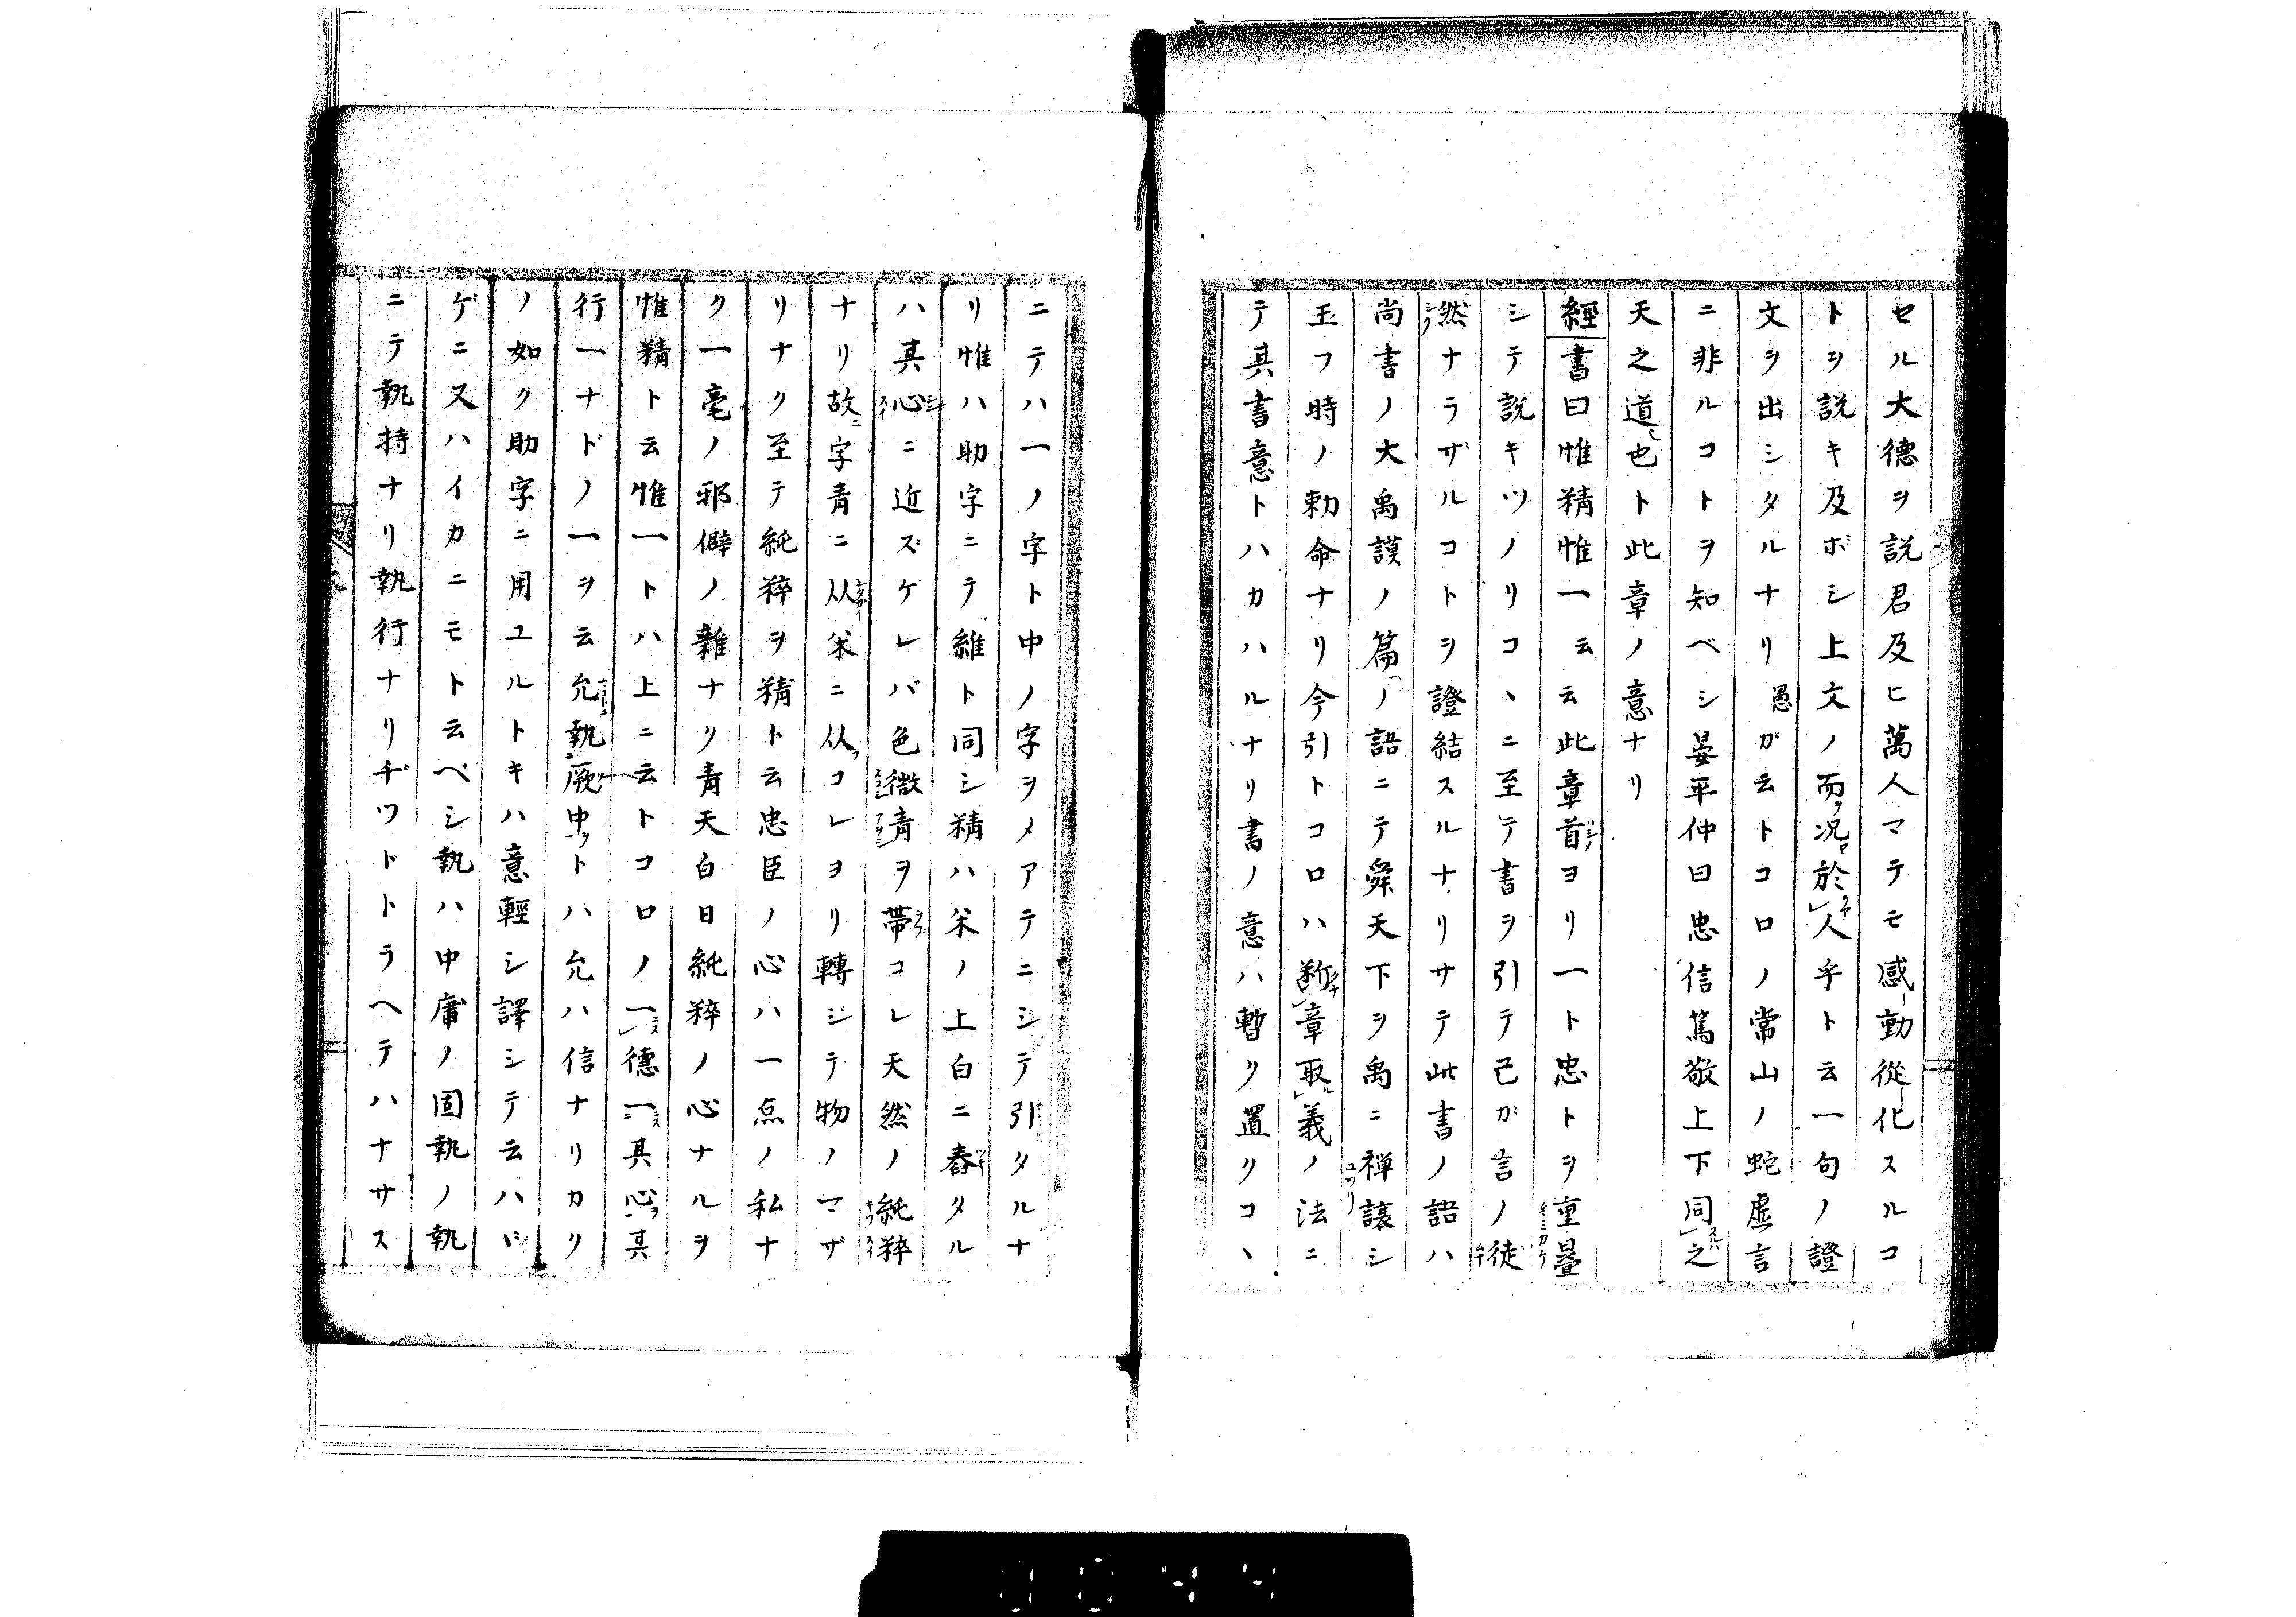 セル大德ヲ説君及ヒ萬人マテモ感動從化スルコ
トヲ説キ及ボシ上文ノ而況於人乎ト云一句ノ證
文ヲ出シタルナリ愚ガ云トコロノ常山ノ蛇虚言
ニ非ルコトヲ知ベシ晏平仲曰忠信篤敬上下同之
天之道也ト此章ノ意ナリ
經書曰惟精惟一云云此章首ヨリ一ト忠トヲ重疊
シテ説キツノリコヽニ至テ書ヲ引テ己ガ言ノ徒
然ナラザルコトヲ證結スルナリサテ此書ノ語ハ
尚書ノ大禹謨ノ篇ノ語ニテ舜天下ヲ禹ニ禅讓シ
玉フ時ノ勅命ナリ今引トコロハ断章取義ノ法ニ
テ其書意トハカハルナリ書ノ意ハ暫ク置クコヽ
ニテハ一ノ字ト中ノ字ヲメアテニシテ引タルナ
リ惟ハ助字ニテ維ト同シ精ハ米ノ上白ニ舂タル
ハ其心ニ近ズケレバ色微青ヲ帶コレ天然ノ純粹
ナリ故字青ニ从米ニ从コレヨリ轉シテ物ノマザ
リナク至テ純粹ヲ精ト云忠臣ノ心ハ一点ノ私ナ
ク一毫ノ邪僻ノ雜ナリ青天白日純粹ノ心ナルヲ
惟精ト云惟一トハ上ニ云トコロノ一德一其心其
行一ナドノ一ヲ云允執厥中トハ允ハ信ナリカリ
ノ如ク助字ニ用ユルトキハ意輕シ譯シテ云ハヾ
ゲニ又ハイカニモト云ベシ執ハ中庸ノ固執ノ執
ニテ執持ナリ執行ナリヂツトトラヘテハナサス